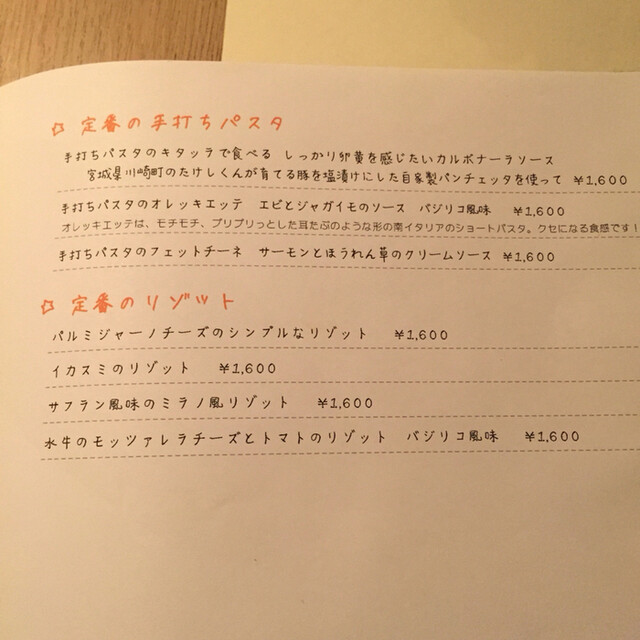 ☆ 定番の手打ちパスタ
手打ちパスタのキタッラで食べる しっかり卵黄を感じたいカルボナーラソース
宮城県川崎町のたけしくんが育てる豚を塩漬けにした自家製パンチェッタを使って ¥1,600
手打ちパスタのオレッキエッテ エビとジャガイモのソース バジリコ風味 ¥1,600
オレッキエッテは、モチモチ、プリプリっとした耳たぶのような形の南イタリアのショートパスタ。クセになる食感です!
手打ちパスタのフェットチーネ サーモンとほうれん草のクリームソース ¥1,600
☆ 定番のリゾット
パルミジャーノチーズのシンプルなリゾット ¥1,600
イカスミのリゾット ¥1,600
サフラン風味のミラノ風リゾット ¥1,600
水牛のモッツァレラチーズとトマトのリゾット バジリコ風味 ¥1,600